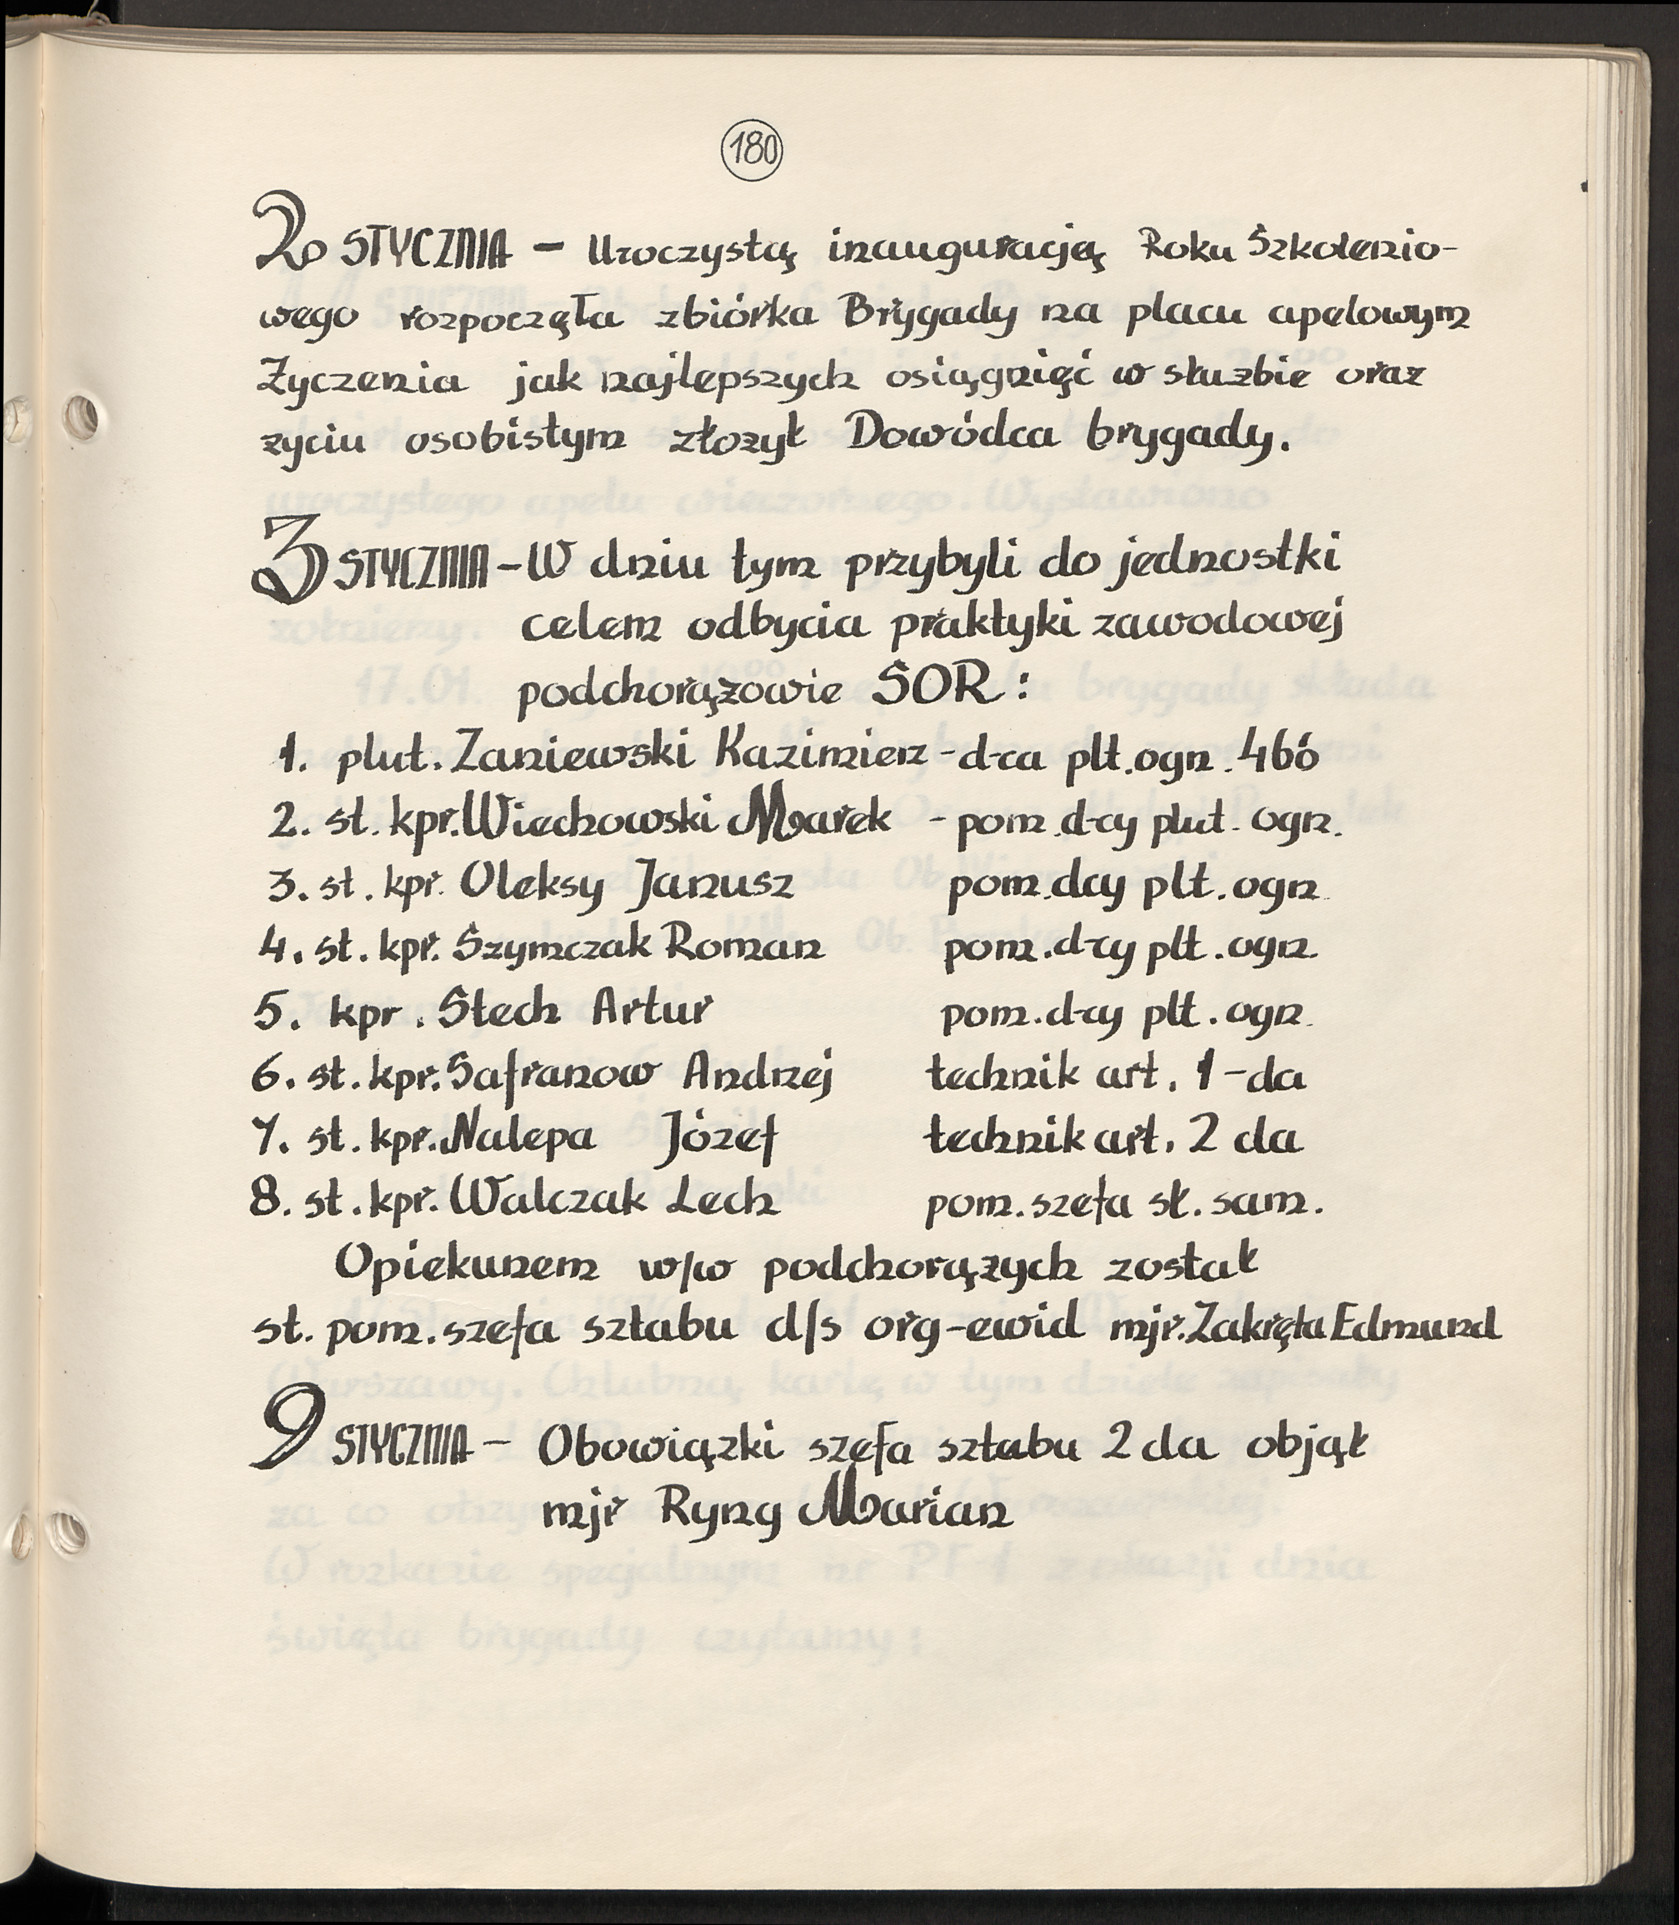 180
2 STYCZNIA - Uroczystą inaugurację Roku Szkolenio-
wego rozpoczęła zbiórka Brygady na placu apelowym
Życzenia jak najlepszych osiągnięć w służbie oraz
życiu osobistym złożył Dowódca brygady.
3 STYCZNIA - W dniu tym przybyli do jednostki
celem odbycia praktyki zawodowej
podchorążowie SOR:
1. plut. Zaniewski Kazimierz - d-ca plt. ogn. 4bó
2. st. kpr. Wiechowski Marek - pom. d-cy plut. ogn.
3. st. kpr. Oleksy Janusz pom. dcy plt. ogn.
4. st. kpr. Szymczak Roman pom. d-cy plt. ogn.
5. kpr. Stech Artur pom. d-cy plt. ogn.
6. st. kpr. Safranow Andrzej technik art. 1-da
7. st. kpr. Nalepa Józef technik art. 2 da
8. st. kpr. Walczak Lech pom. szefa sł. sam.
Opiekunem w/w podchorążych został
st. pom. szefa sztabu d/s org-ewid mjr. Zakręta Edmund
9 STYCZNIA - Obowiązki szefa sztabu 2 da objął
mjr Ryng Marian